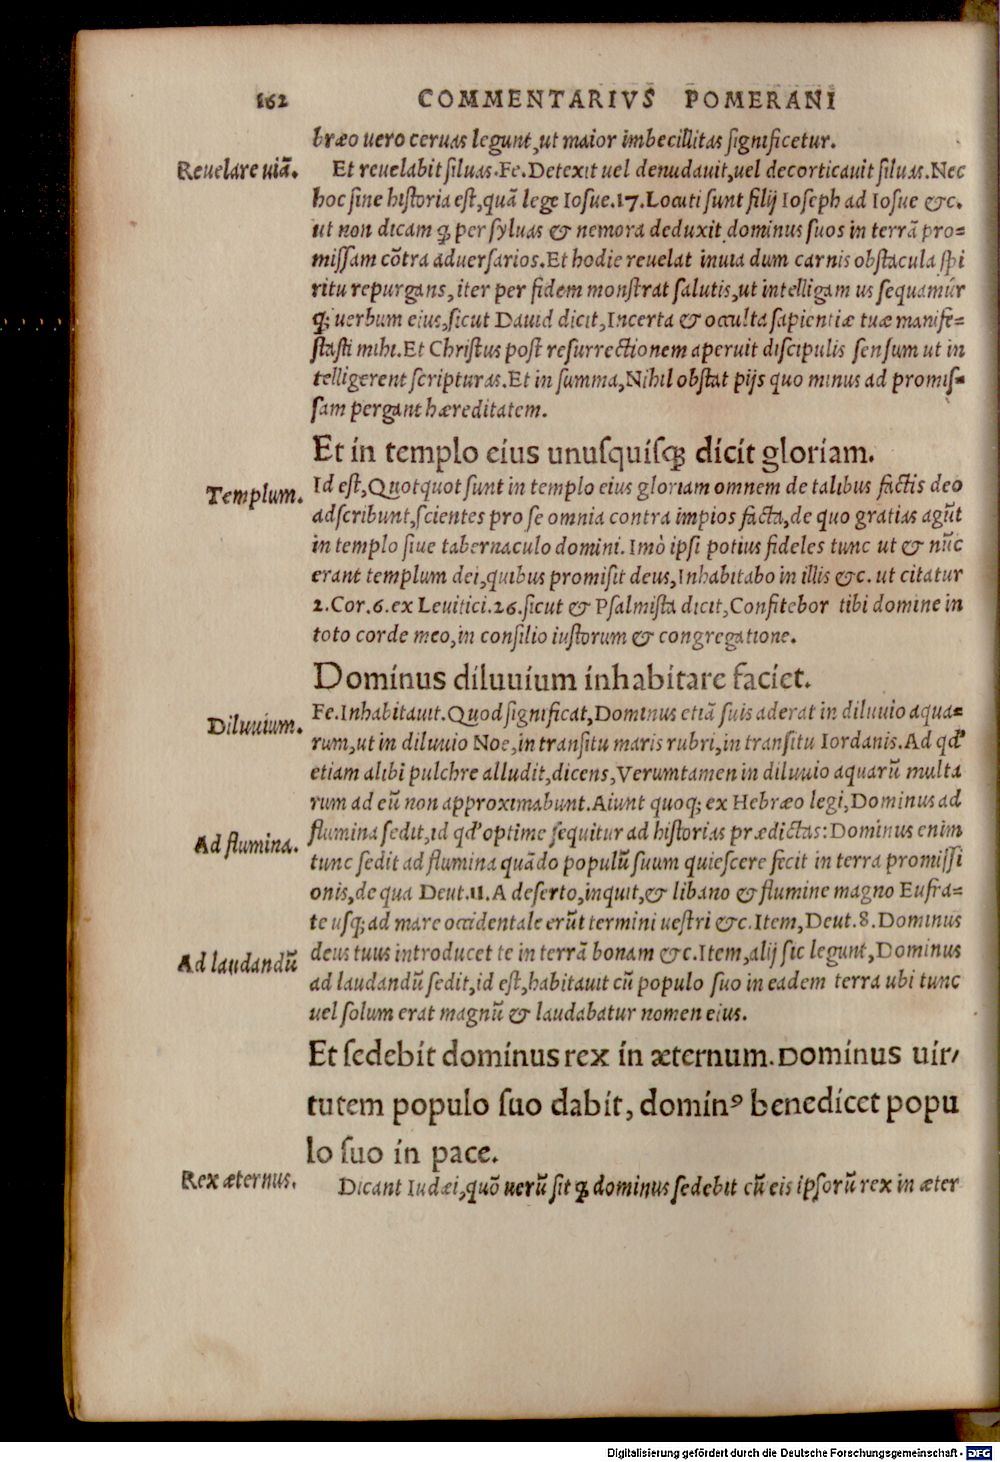 162 COMMENTARIVS POMERANI
bræo uero ceruas legunt, ut maior imbecillitas significetur.
Reuelare uiã. Et reuelabit siluas. Fe. Detexit uel denudauit, uel decorticauit siluas. Nec
hoc sine historia est, quã lege Iosue. 17. Locuti sunt filij Ioseph ad Iosue &c.
ut non dicam ꝙ per syluas & nemora deduxit dominus suos in terrã pro=
missam cõtra aduersarios. Et hodie reuelat inuia dum carnis obstacula spi
ritu repurgans, iter per fidem monstrat salutis, ut intelligam us sequamúr
q; uerbum eius, sicut Dauid dicit, Incerta & occulta sapientiæ tuæ manife=
stasti mihi. Et Christus post resurrectionem aperuit discipulis sensum ut in
telligerent scripturas. Et in summa, Nihil obstat pijs quo minus ad promis=
sam pergant hæreditatem.
Et in templo eius unusquisq; dicit gloriam.
Templum. Id est, Quotquot sunt in templo eius gloriam omnem de talibus factis deo
adscribunt, scientes pro se omnia contra impios facta, de quo gratias agũt
in templo siue tabernaculo domini. Imò ipsi potius fideles tunc ut & nũc
erant templum dei, quibus promisit deus, Inhabitabo in illis &c. ut citatur
2. Cor. 6. ex Leuitici. 26. sicut & Psalmista dicit, Confitebor tibi domine in
toto corde meo, in consilio iustorum & congregatione.
Dominus diluuium inhabitare faciet.
Diluuium. Fe. Inhabitauit. Quod significat, Dominus etiã suis aderat in diluuio aqua=
rum, ut in diluuio Noe, in transitu maris rubri, in transitu Iordanis. Ad qđ
etiam alibi pulchre alludit, dicens, Verumtamen in diluuio aquarũ multa
rum ad eũ non approximabunt. Aiunt quoq; ex Hebræo legi, Dominus ad
Ad flumina. flumina sedit, id qđ optime sequitur ad historias prædictas: Dominus enim
tunc sedit ad flumina quãdo populũ suum quiescere fecit in terra promissi
onis, de qua Deut. 11. A deserto, inquit, & libano & flumine magno Eufra=
te usq; ad mare occidentale erũt termini uestri &c. Item, Deut. 8. Dominus
Ad laudandũ deus tuus introducet te in terrã bonam &c. Item, alij sic legunt, Dominus
ad laudandũ sedit, id est, habitauit cũ populo suo in eadem terra ubi tunc
uel solum erat magnũ & laudabatur nomen eius.
Et sedebit dominus rex in æternum. Dominus uir/
tutem populo suo dabit, dominꝰ benedicet popu
lo suo in pace.
Rex æternus. Dicant Iudæi, quõ uerũ sit ꝙ dominus sedebit cũ eis ipsorũ rex in æter
Digitalisierung gefördert durch die Deutsche Forschungsgemeinschaft - DFG